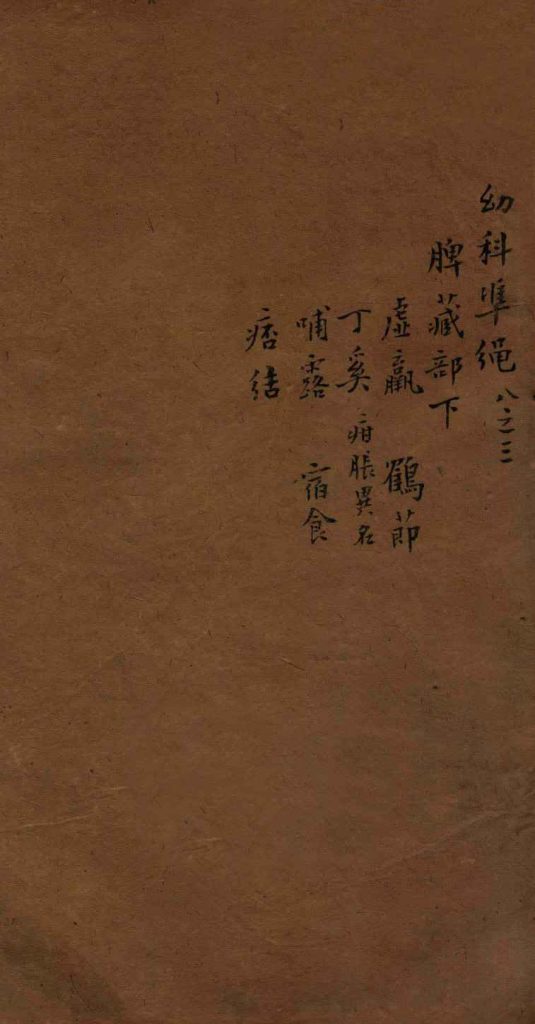 幼科準绳 八之三
脾藏部下
虚羸 鶴節
丁奚 疳脹異名
哺露 宿食
痞结